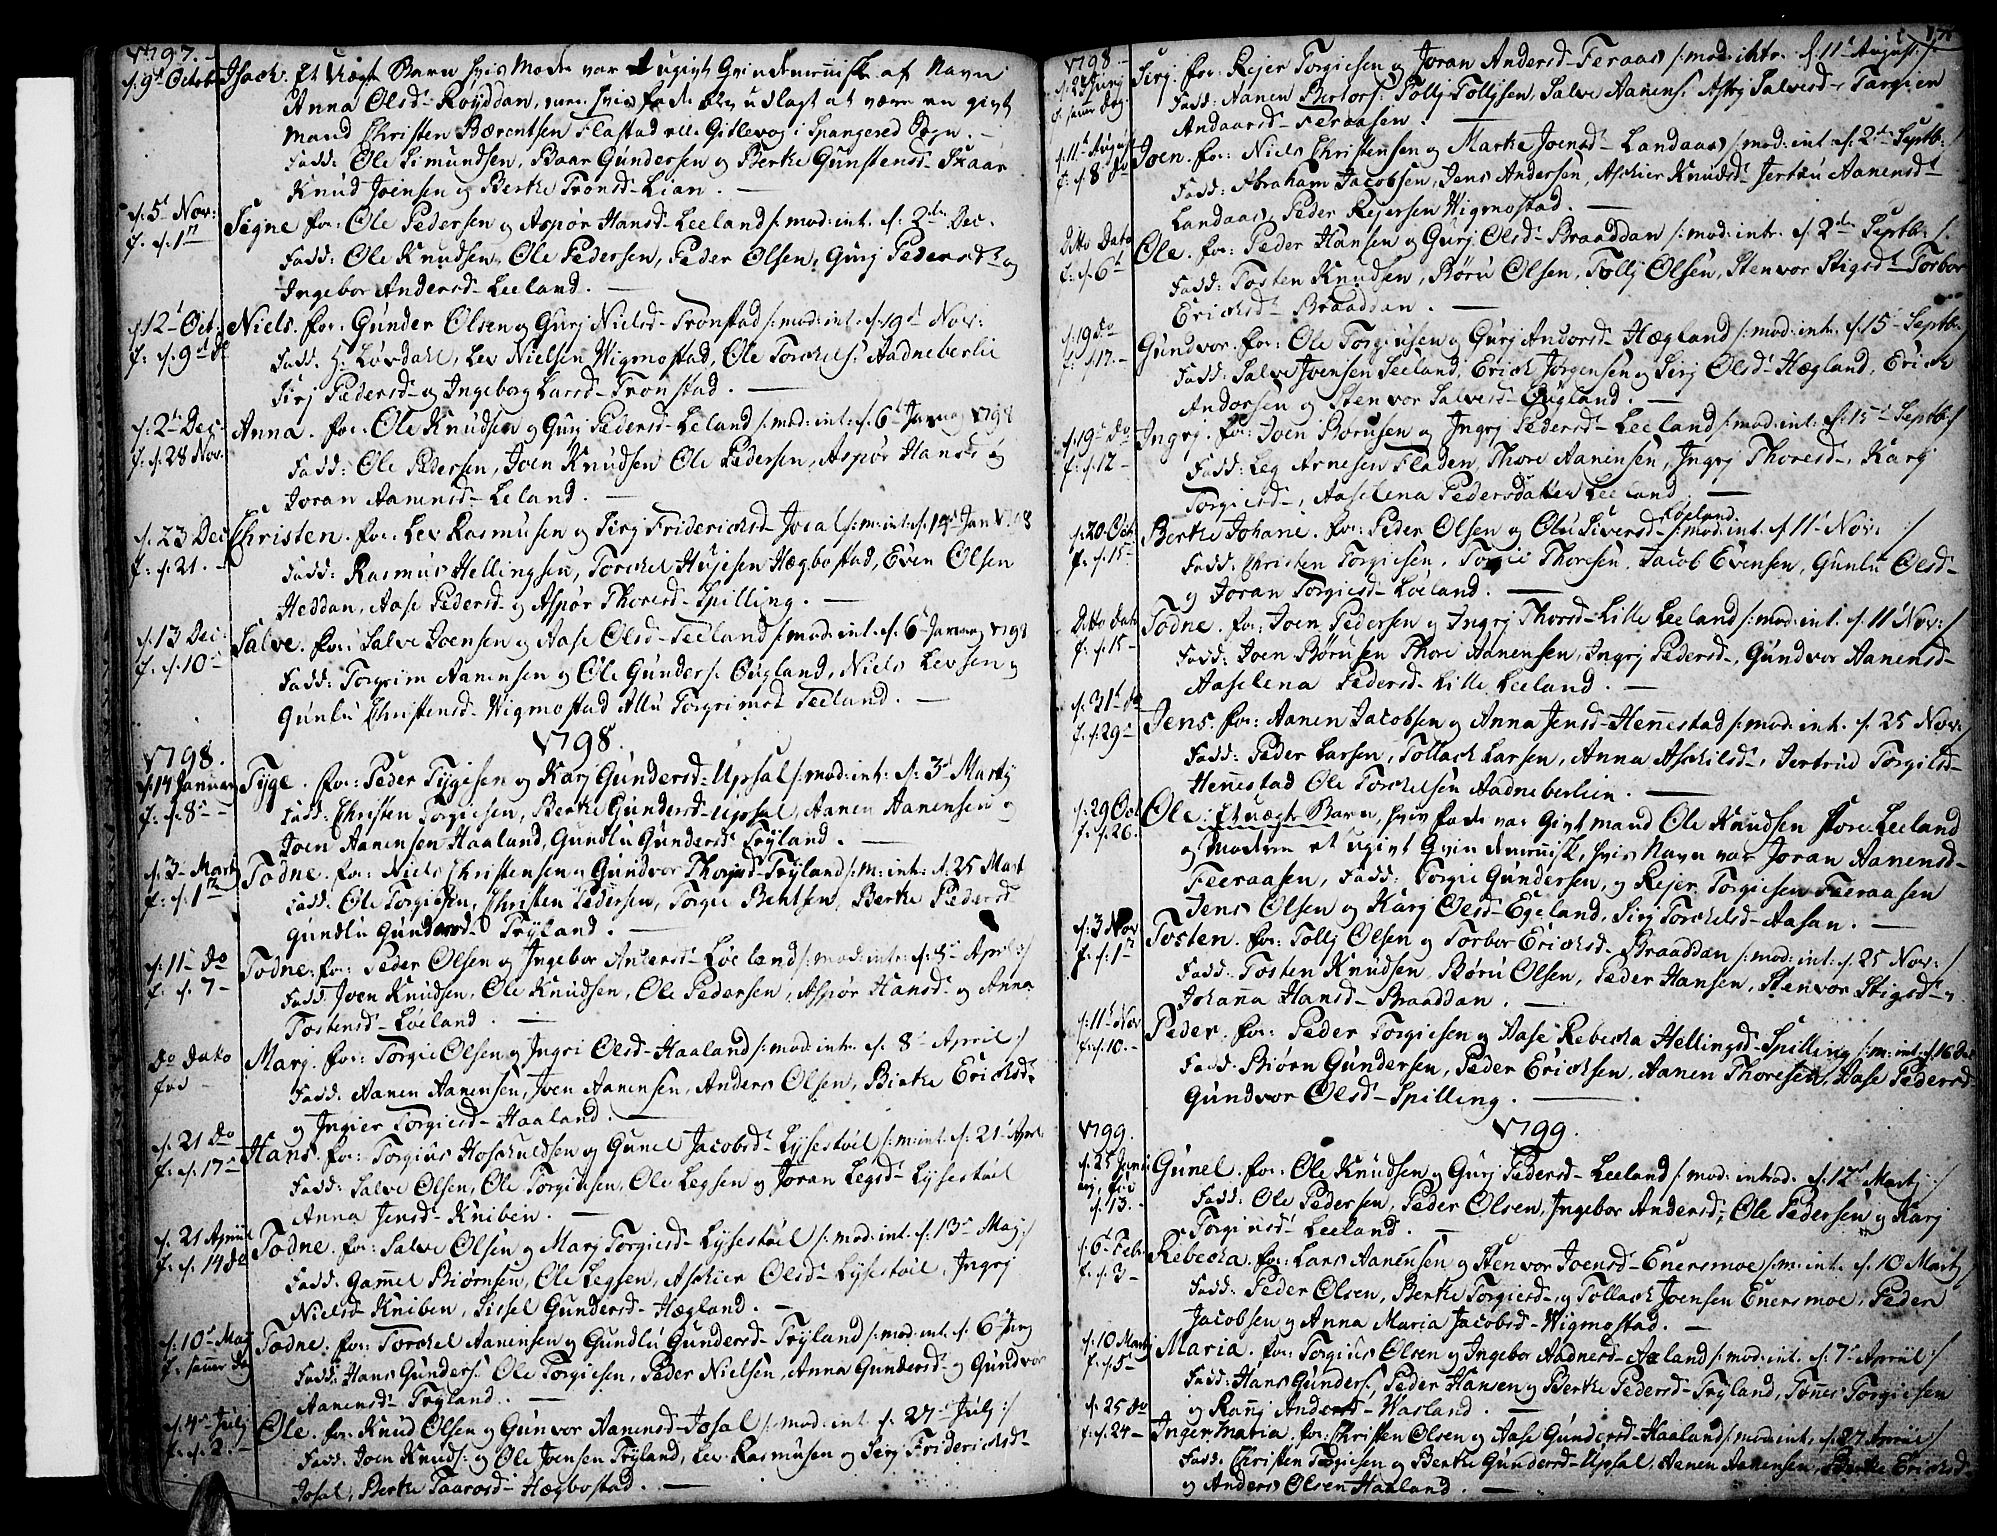 1797.
d: 9d Octobr Isach. Et Uægte Barn hvis Moder var et ugivt Qvindemenniske af Navn
Anna Olsd- Røyddan, men hvis fader blev udlagt at være en givt
mand Christen Bærentsen Flastad elle Gitlevog i Spangered Sogn. -
Fadd: Ole Simundsen, Baar Gundersen og Berte Gunstensd- Skaar
Knud Joensen og Berte Tronsd- Lian. -
d: 5t Nov: Signe for: Ole Pedersen og Aspør Hansd- Leeland /: mod: int. d. 2den Dec.
f. d. 1n Fadd: Ole Knudsen, Ole Pedersen, Peder Olsen, Gurj Pedersdr og
Ingebor Andersd- Leeland. -
d 12t Oct: Niels. for: Gunder Olsen og Gurj Nielsd- Tronstad /: mod: int. d. 19d Nov:
f: d. 9d do Fadd. H. Løvdahl, Lev Nielsen Wigmostad, Ole Torchels: Aadneberlie
Sirj Pedersd- og Ingeborg Larsd- Tronstad. -
d: 2d Dec Anna. for: Ole Knudsen og Gurj Pedersd- Leland /: mod: int: d: 6t Januarj 1798
f: d. 28 Nov. Fadd: Ole Pedersen, Joen Knudsen Ole Pedersen, Aspør Hansd og
Joran Aanensd- Leland. -
d. 23 Dec Christen. for. Lev Rasmusen og Serj Fridericksd- Josal /: m: int: d. 14d Jan 1798
f: d. 21. - Fadd: Rasmus Hellingsen, Torckel Hujesen Hægbostad, Even Olsen
Heddan, Aase Pedersd- og Aspør Thoresd- Spilling. -
d: 13 Dec: Salve. for: Salve Joensen og Aase Olsd- Teeland /: mod: int. d. 6t Januarj 1798
f. d. 10d Fadd: Torgrim Aanensen og Ole Gunders: Ougland, Niels Levsen og
Gunlu Christensd- Wigmostad Allu Torgrimsd Teeland. -
1798. 1798.
d: 14 Januarj Tyge. for: Peder Tygesen og Karj Gundersd- Upsal /: mod: int: d: 3d Martj
f: d. 8d - Fadd: Christen Torgiesen, Berte Gundersd- Upsal, Aanen Aanensen og
Joen Aanensen Haaland, Gundlu Gundersdr Tryland. -
d. 3 Mart Todne. for: Niels Christensen og Gundvor Thorjusd- Tryland /: m: int: d. 25 Mart
f: d. 1n Fadd: Ole Torgiesen, Christen Pedersen, Torgie Bentsen, Berte Pedersd
Gundlu Gundersd- Tryland. -
d: 11d do Todne: for: Peder Olsen og Ingebor Andersd- Løeland /: mod: int: d. 8d April :/
f. d. 7 - Fadd: Joen Knudsen, Ole Knudsen, Ole Pedersen, Aspør Hansdr og Anna
Tostensd- Løeland. -
do dato Marj. for: Torgie Olsen og Ingri Olsd- Haaland /: mod: int. d. 8d April :/
Fadd: Aanen Aanensen, Joen Aanensen, Anders Olsen, Birte Ericksdr
og Ingier Torgiesd- Haaland. -
d: 21 do Hans. for: Torgius Hoskuldsen og Gunel Jacobsd- Lysestøel /: m: int. d. 21d Apr:
f: d. 17d Fadd: Salve Olsen, Ole Torgiusen, Ole Legsen og Joran Legsd- Lysestøel
Anna Jensd- Kniben. -
d: 21 Apriil Todne. for: Salve Olsen og Marj Torgiesd- Lysestøel /: mod: int. d: 13d Maj :/
f. d. 14de Fadd: Gamel Biørnsen, Ole Legsen, Aschier Olsd- Lysestøel, Ingrj
Nielsd- Kniben, Sissel Gundersd- Hægland. -
d. 10d Maj Todne: for: Torckel Aanensen og Gundlu Gundersd- Tryland /: mod: int. d. 6t Junj
f: samme dag Fadd: Hans Gunders: Ole Torgiesen, Peder Nielsen, Anna Gundersd- og Gundvor
Aanensd- Tryland. -
d. 4d Julj Ole. for: Knud Olsen og Gunvor Aanensd- Josal /: mod: int. d. 27d Julj :/
f: d. 2. - Fadd: Joen Knuds: og Ole Joensen Tryland, Lev Rasmusen og Serj Fridericksd-
Josal, Berte Taarosd- Hægbostad. -
1798 -
d. 29 Junj Sirj. for: Rejer Torgiesen og Joran Andersd- Feraas /: mod: intr. d. 11t August :/
f: samme dag. Fadd: Aanen Bertors: Tollj Tollisen, Salve Aanens: Astrj Salvesd- Targien
Andaarsd- Feraasen. -
d: 11t August Joen. for: Niels Christensen og Marte Joensd- Landaas /: mod: int. d. 2d Septb:
f: d 8d do Fadd: Abraham Jacobsen, Jens Andersen, Aschier Knudsd- Jertru Aanensdr
Landaas, Peder Rejersen Wigmostad. -
Ditto Dato Ole. for: Peder Hansen og Gurj Olsd- Braaddan /: mod: intr. d. 2d Septb: :/
f: d. 6t Fadd: Tosten Knudsen, Børu Olsen, Tollj Olsen, Stenvor Stigsdr Torbor
Ericksd- Braaddan. -
d. 19 do Gundvor. for: Ole Torgiusen og Gurj Andorsd- Hægland /: mod: int. d. 15d Septb:
f: d. 17. - Fadd: Salve Joensen Leeland, Erick Jørgensen og Serj Olsd- Hægland, Erick
Andorsen og Stenvor Salvesd- Ougland. -
d: 19d do Ingrj. for: Joen Børusen og Ingrj Pedersd- Leeland /: mod: int: d: 15d Septb:
f: d. 12 - Fadd: Leg Arnesen Fladen, Thore Aanensen, Ingrj Thoresd-, Karj
Torgiesd-, Aaselena Pedersdatter Leeland. -
d: 20 Oct Berte Johane. for: Peder Olsen og Olu Siversd- Løeland /: mod: int. d 11t Nov: :/
f: d. 15 - Fadd: Christen Torgiesen. Torgie Thoresen, Jacob Evensen, Gunlu Olsd-
og Joran Torgiesd- Løeland. -
Ditto Dato Todne. for: Joen Pedersen og Ingrj Thorsd- Lille Leeland /: mod: int. d. 11t Nov: :/
f: d. 15 - Fadd: Joen Børusen Thore Aanensen, Ingrj Pedersd-, Gundvor Aanensd-
Aaselena Pedersd- Lille Leeland. -
d. 31t do Jens. for: Aanen Jacobsen og Anna Jensd- Hennestad /: mod: int. d. 25 Nov:
f. d. 29d Fadd: Peder Larsen, Tollack Larsen, Anna Aschilsd-, Jertrud Torgilsd-
Hennestad Ole Torchelsen Aadneberlien. -
d. 29 Oct Ole. Et uægte Barn, hvis fader var Givt mand Ole Knudsen Store Leeland
f. d. 26. og moderen et ugivt Qvindemennisk, hvis Navn var Joran Aanensd-
Feeraasen, Fadd: Torgie Gundersen, og Rejer Torgiesen Feeraasen
Jens Olsen og Karj Olsd- Egeland, Sirj Torckelsd- Aasan. -
d: 3 Nov Tosten. for: Tollj Olsen og Torbor Ericksd- Braaddan /: mod: int: d. 25 Nov: :/
f: d. 1n Fadd: Tosten Knudsen, Børu Olsen, Peder Hansen, Stenvor Stigsd- og
Johanna Hansd- Braaddan. -
d: 11t Nov Peder. for: Peder Torgiesen og Aase Rebecka Hellingsd- Spilling /: m: int: d. 16 Dec
f: d. 10. - Fadd: Biørn Gundersen, Peder Ericksen, Aanen Thoresen, Aase Pedersd-
Gundvor Olsd- Spilling. -
1799. 1799.
d. 25 Janu Gunel. for: Ole Knudsen og Gurj Pedersd- Leeland /: mod: introd. d. 12d Martj :/
d. 13. - Fadd: Ole Pedersen, Peder Olsen, Ingebor Andersd-, Ole Pedersen og Karj
Torginsd- Leeland. -
d: 6t Febr Rebecka. for: Lars Aanensen og Stenvor Joensd- Enersmoe /: m: int. d. 10 Martj
f. d. 3 - Fadd: Peder Olsen, Berte Torgiesd-, og Tollack Joensen Enersmoe, Peder
Jacobsen og Anna Maria Jacobsd- Wigmostad. -
d: 10 Martj Maria. for: Torgius Olsen og Ingebor Aadnesd- Aaland /: mod: int. d. 7d Apriil :/
f: d. 5 - Fadd: Hans Gunders:, Peder Hansen og Berte Pedersd- Tryland, Tønnes Torgiesen
og Rannj Andersd- Wasland. -
d: 25 do Inger Maria. for: Christen Olsen og Aase Gundersd- Haaland /: mod: int. d. 27 Apriil :/
f. d. 24 - Fadd: Christen Torgiesen og Berte Gundersd- Upsal, Aanen Aanensen, Berte Ericksd-
og Anders Olsen Haaland. -